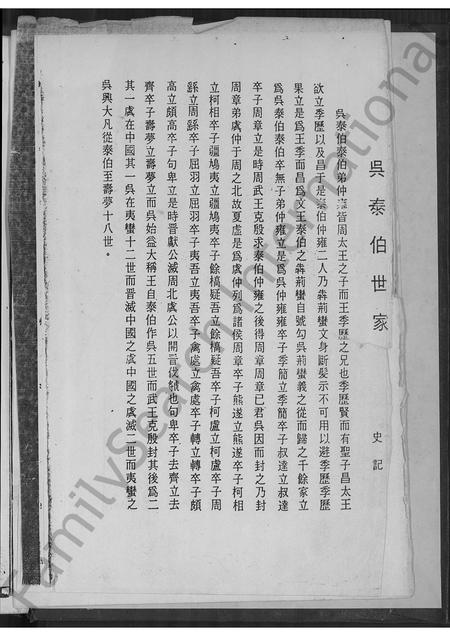 吳泰伯世家
史記
吳泰伯泰伯弟仲雍皆周太王之子而王季歷之兄也季歷賢而有聖子昌太王
欲立季歷以及昌于是泰伯仲雍二人乃犇荊蠻文身斷髮示不可用以避季歷季歷
果立是爲王季而昌爲文王泰伯之犇荊蠻自號勾吳荊蠻義之從而歸之千餘家立
爲吳泰伯泰伯卒無子弟仲雍立是爲吳仲雍雍卒子季簡立季簡卒子叔達立叔達
卒子周章立是時周武王克殷求泰伯仲雍之後得周章周章已君吳因而封之乃封
周章弟虞仲于周之北故夏虛是爲虞仲列爲諸侯周章卒子熊遂立熊遂卒子柯相
立柯相卒子疆鳩夷立疆鳩夷卒子餘橋疑吾立餘橋疑吾卒子柯盧立柯盧卒子周
繇立周繇卒子屈羽立屈羽卒子夷吾立夷吾卒子禽處立禽處卒子轉立轉卒子頗
高立頗高卒子句卑立是時晉獻公滅周北虞公以開晉伐虢也句卑卒子去齊立去
齊卒子壽夢立壽夢立而吳始益大稱王自泰伯作吳五世而武王克殷封其後爲二
其一虞在中國其一吳在夷蠻十二世而晉滅中國之虞中國之虞滅二世而夷蠻之
吳興大凡從泰伯至壽夢十八世。
FamilySearch International